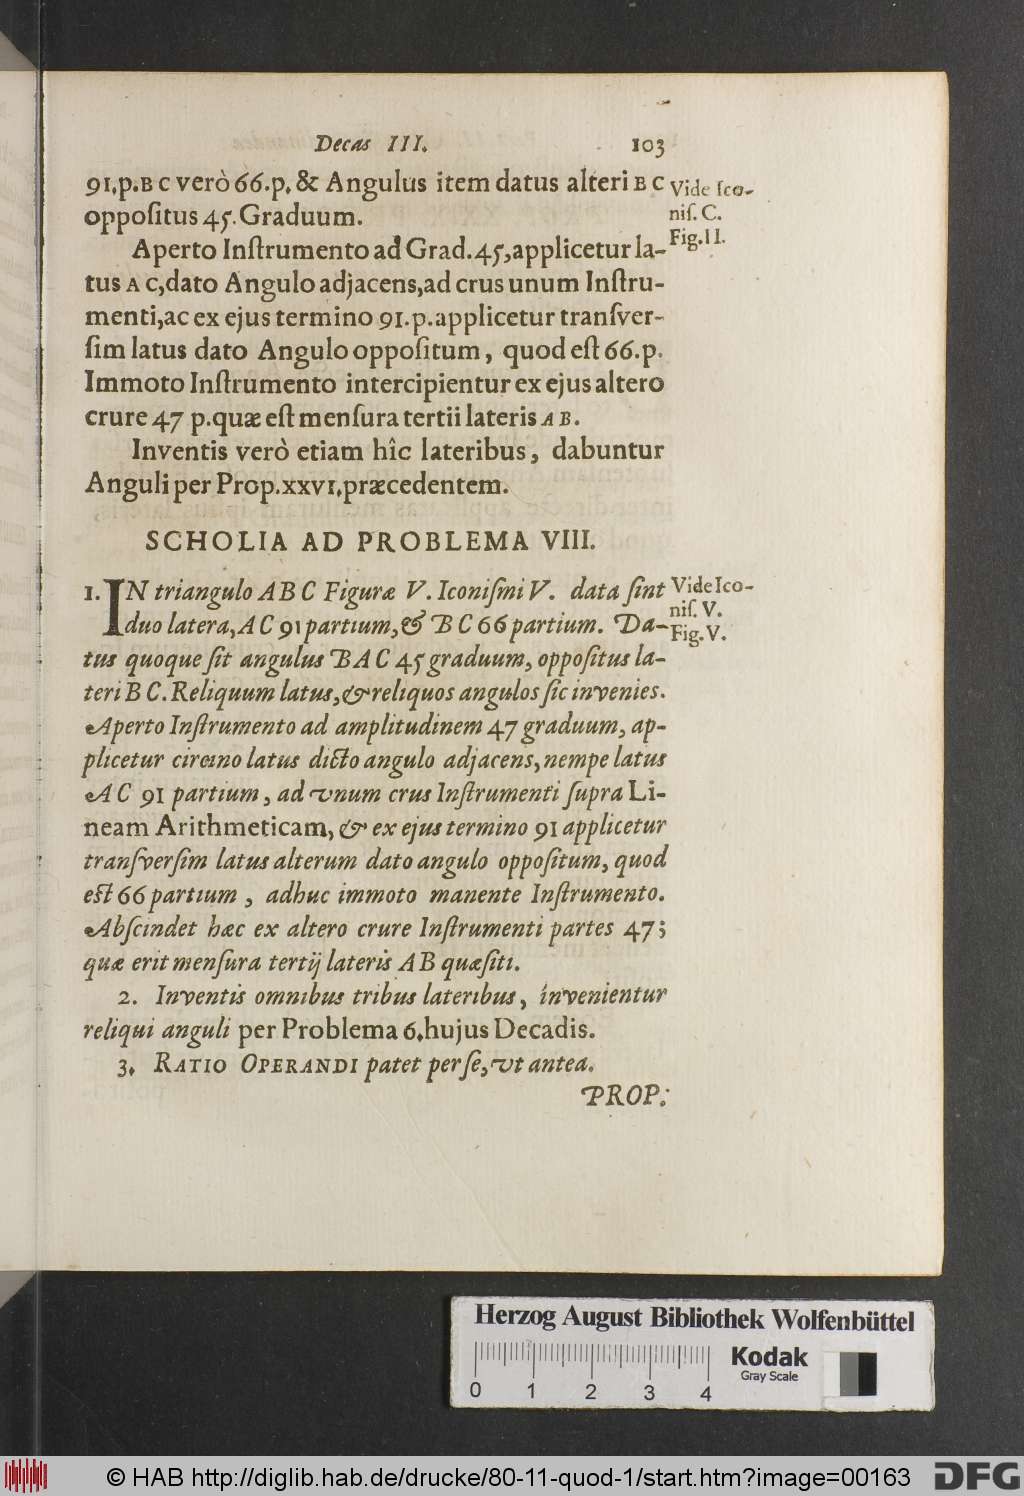 Decas III. 103
91.p.B C verò 66.p. & Angulus item datus alteri B C
Vide Ico-
oppoſitus 45. Graduum.
niſ. C.
Fig.II.
Aperto Inſtrumento ad Grad.45,applicetur la-
tus A C,dato Angulo adjacens,ad crus unum Inſtru-
menti,ac ex ejus termino 91.p.applicetur tranſver-
ſim latus dato Angulo oppoſitum, quod eſt 66.p.
Immoto Inſtrumento intercipientur ex ejus altero
crure 47 p.quæ eſt menſura tertii lateris A B.
Inventis verò etiam hîc lateribus, dabuntur
Anguli per Prop.xxvi.præcedentem.
SCHOLIA AD PROBLEMA VIII.
1. IN triangulo A B C Figuræ V. Iconiſmi V. data ſint
Vide Ico-
niſ. V.
duo latera, A C 91 partium, & B C 66 partium. Da-
Fig. V.
tus quoque ſit angulus B A C 45 graduum, oppoſitus la-
teri B C. Reliquum latus, & reliquos angulos ſic invenies.
Aperto Inſtrumento ad amplitudinem 47 graduum, ap-
plicetur circino latus dicto angulo adjacens, nempe latus
A C 91 partium, ad vnum crus Inſtrumenti ſupra Li-
neam Arithmeticam, & ex ejus termino 91 applicetur
tranſverſim latus alterum dato angulo oppoſitum, quod
eſt 66 partium, adhuc immoto manente Inſtrumento.
Abſcindet hæc ex altero crure Inſtrumenti partes 47;
quæ erit menſura tertij lateris A B quæſiti.
2. Inventis omnibus tribus lateribus, invenientur
reliqui anguli per Problema 6. hujus Decadis.
3. RATIO OPERANDI patet per ſe, vt antea.
PROP.
Herzog August Bibliothek Wolfenbüttel
Kodak
Gray Scale
0 1 2 3 4
© HAB http://diglib.hab.de/drucke/80-11-quod-1/start.htm?image=00163
DFG